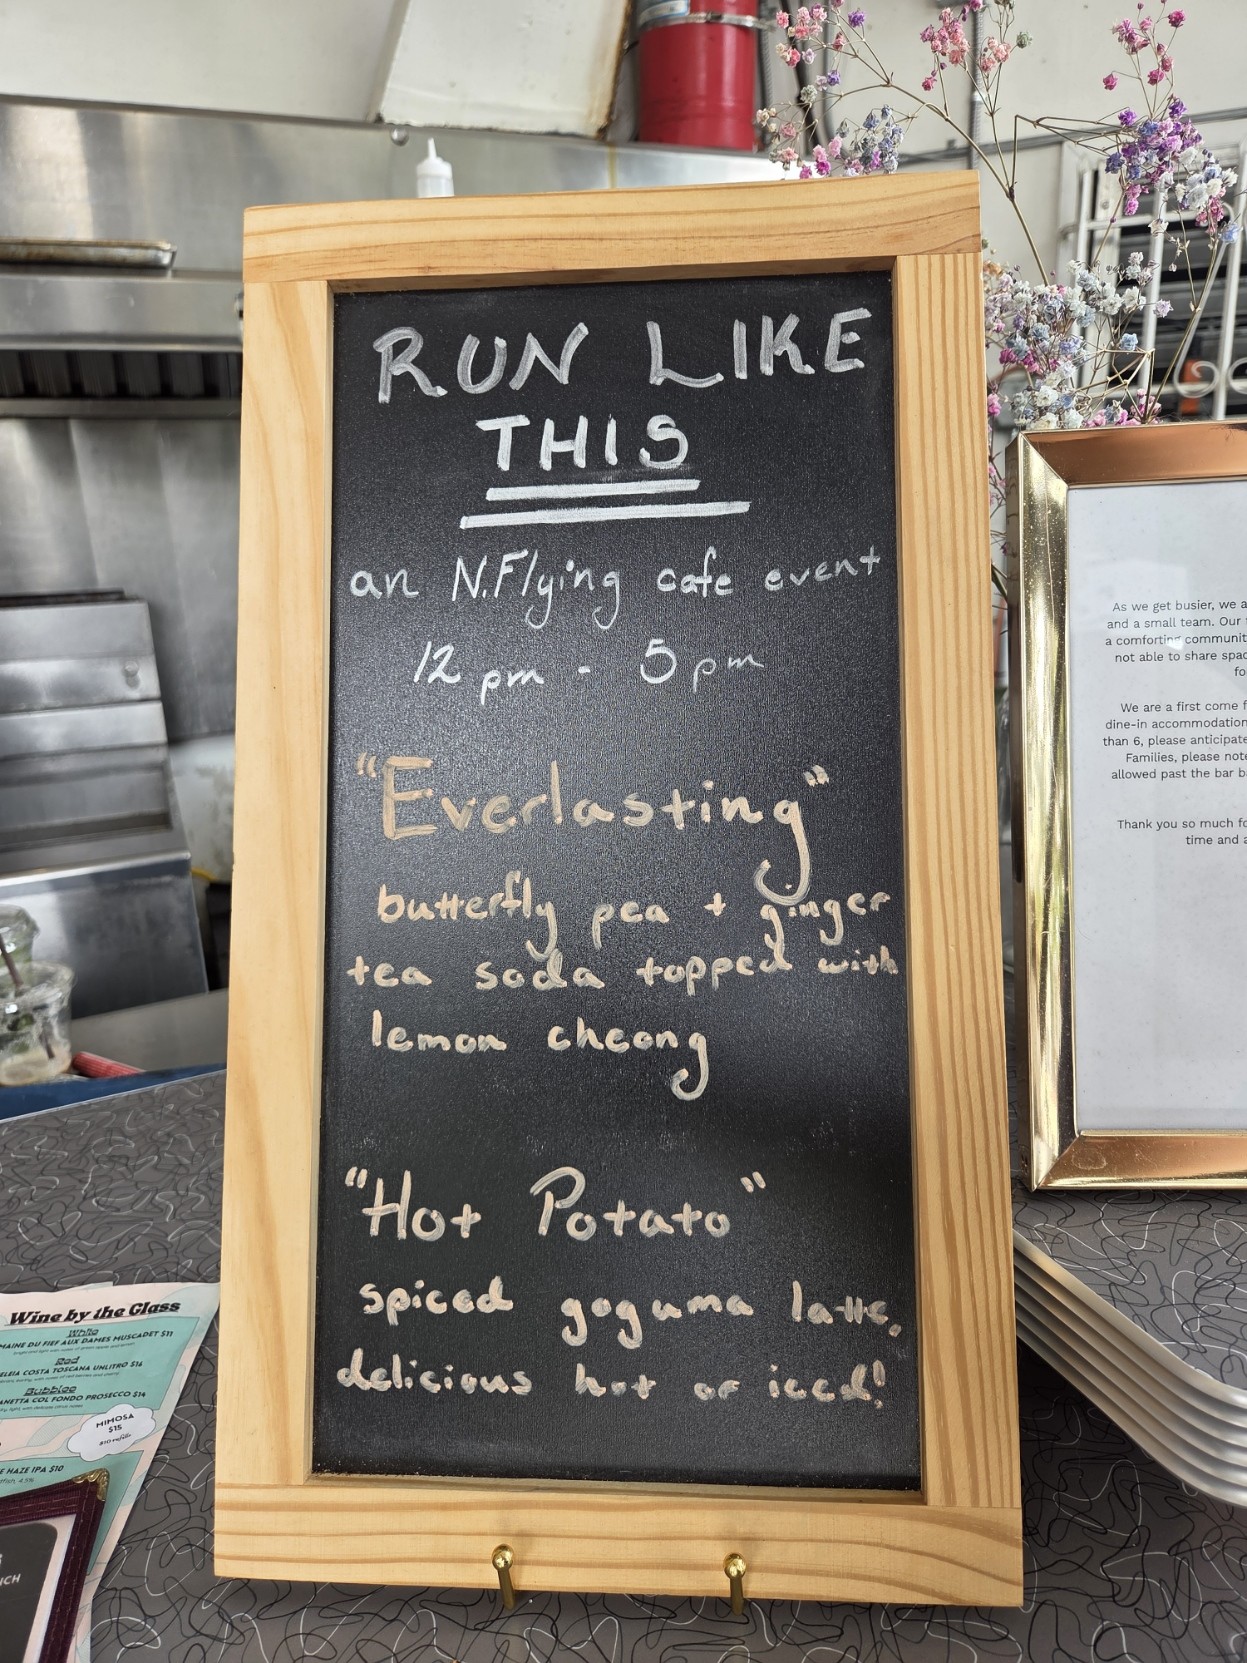 RUN LIKE
THIS
an N.Flying cafe event
12 pm - 5pm
"Everlasting"
butterfly pea + ginger
tea soda topped with
lemon cheong
"Hot Potato"
spiced goguma latte,
delicious hot or iced!
As we get busier, we a
and a small team. Our
a comforting communit
not able to share spac
fo
We are a first come f
dine-in accommodation
than 6, please anticipate
Families, please note
allowed past the bar b
Thank you so much fo
time and a
Wine by the Glass
White
MAINE DU FIEF AUX DAMES MUSCADET $11
Red
ELEIA COSTA TOSCANA UNLITRO $16
Bubbles
ANETTA COL FONDO PROSECCO $14
MIMOSA
$15
$10 refills
E HAZE IPA $10
4.5%